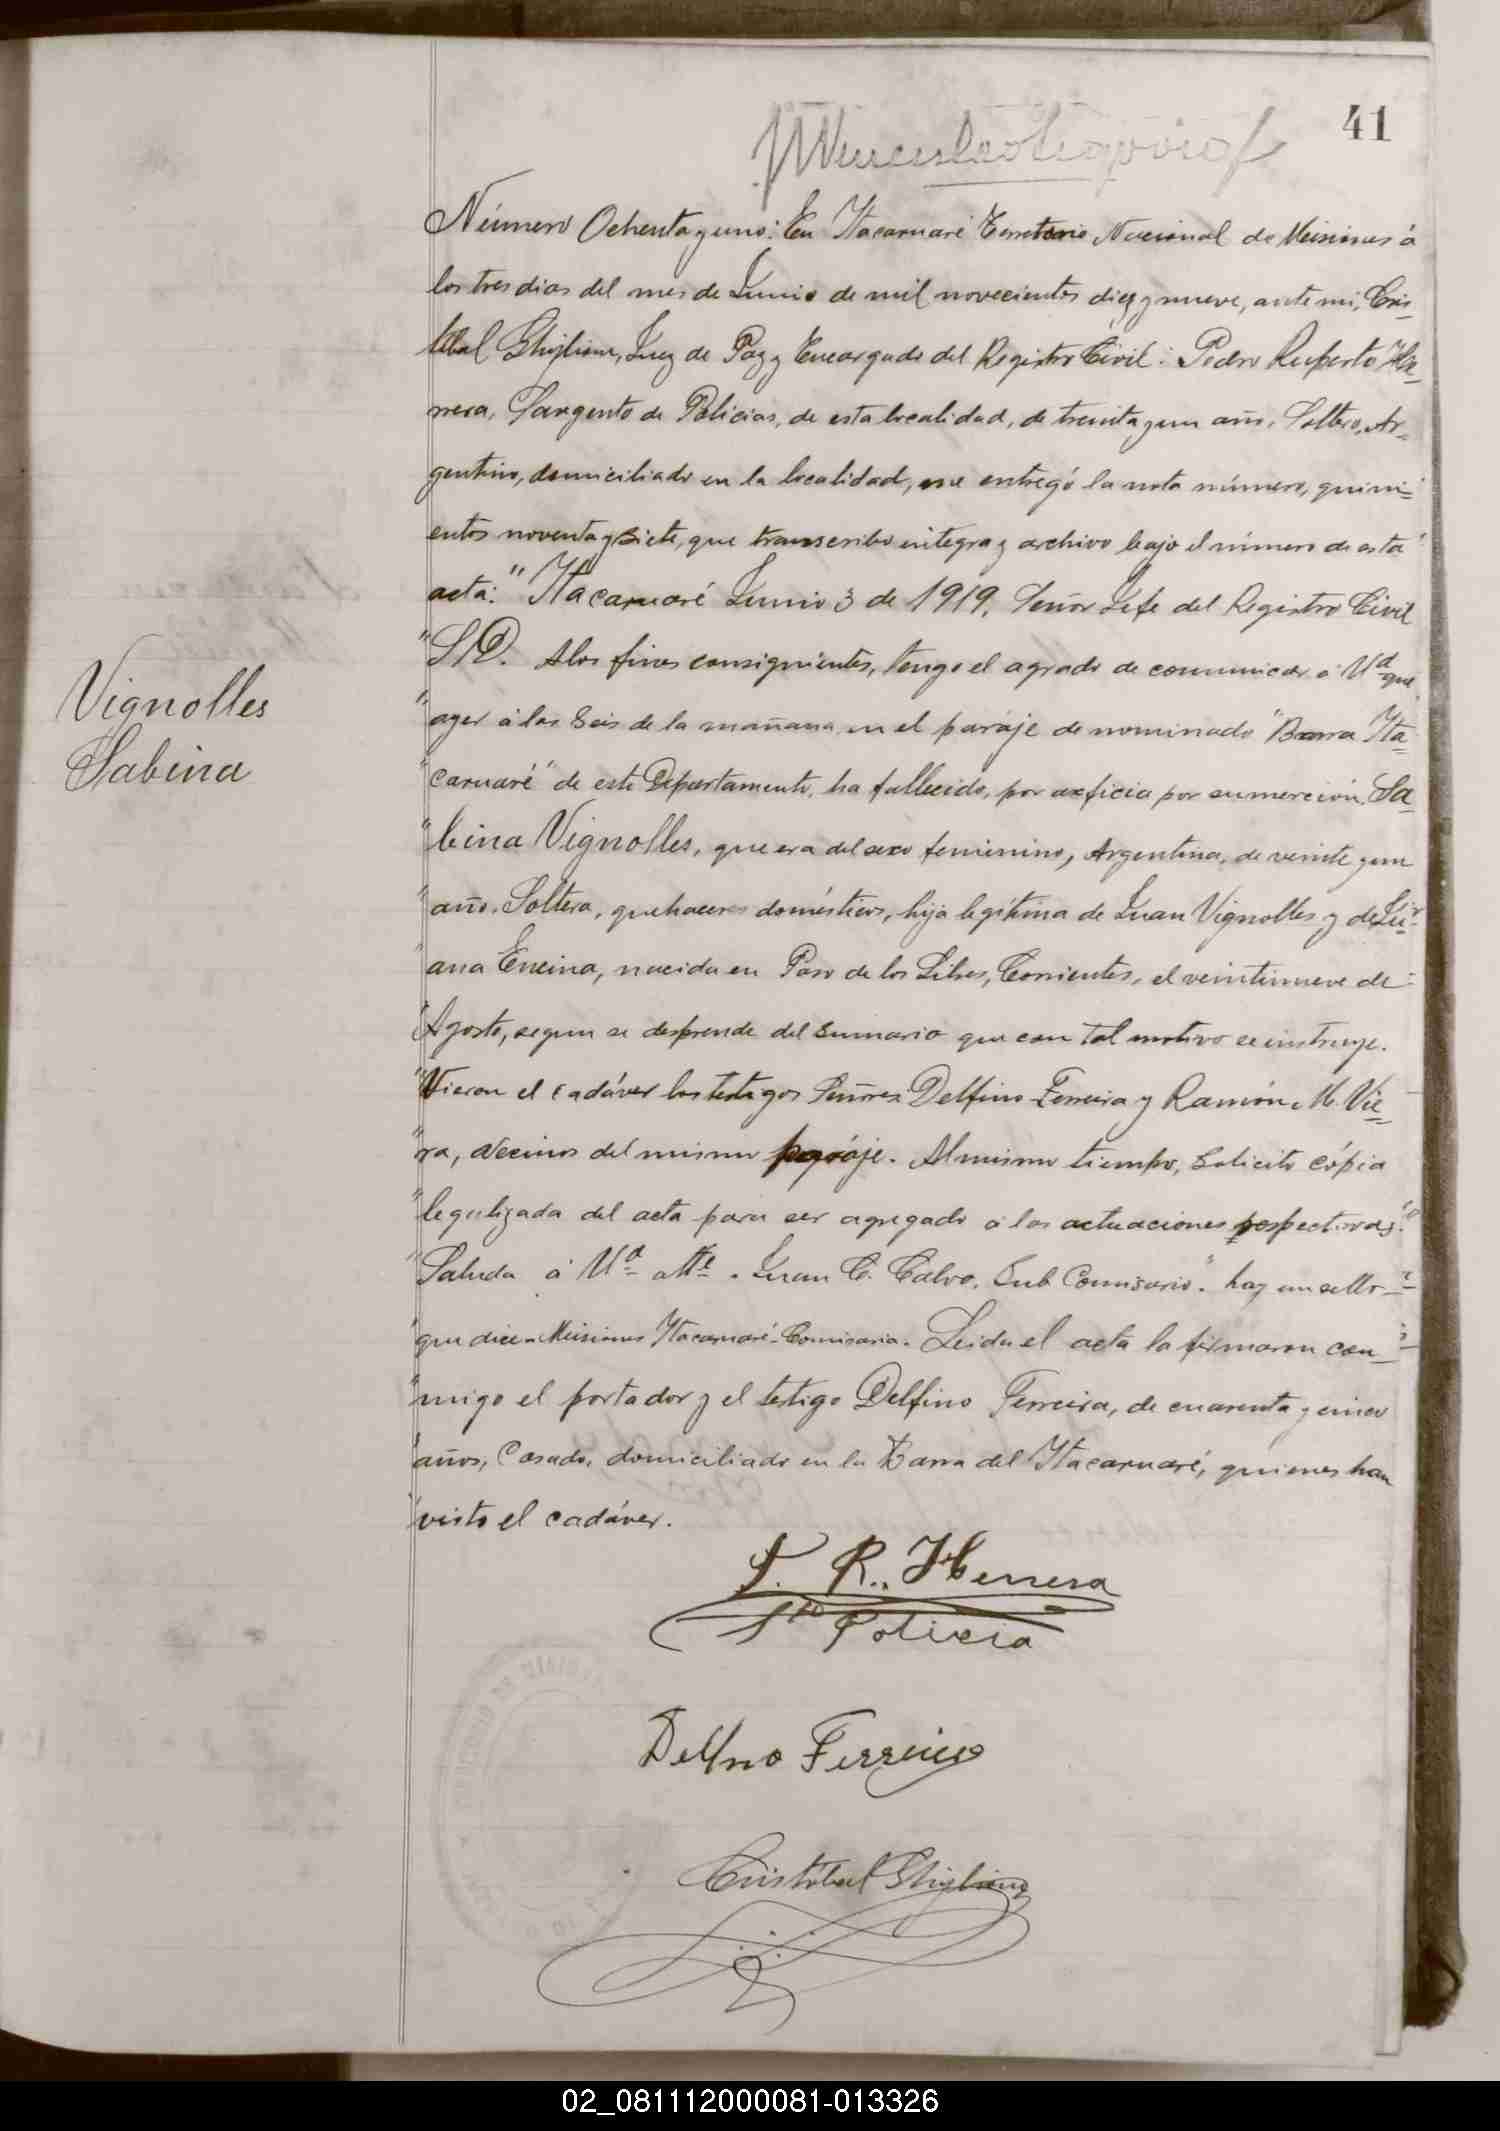 41
Número Ochenta y uno: En Itacaruaré Territorio Nacional de Misiones á
los tres dias del mes de Junio de mil novecientos diez y nueve, ante mi, Cris-
tobal Ghiglione, Juez de Paz y Encargado del Registro Civil: Pedro Ruperto He-
rrera, Sargento de Policias, de esta localidad, de treinta y un año, Soltero, Ar-
gentino, domiciliado en la localidad, me entregó la nota número, quini-
entos noventa y siete, que transcribo integra y archivo bajo el número de esta
acta: "Itacaruaré Junio 3 de 1919. Señor Jefe del Registro Civil
"S/D. A los fines consiguientes, tengo el agrado de comunicar á Ud que
"ayer á las seis de la mañana en el paraje denominado "Barra Ita-
"caruaré" de este Departamento, ha fallecido, por axficia por sumerción, Sa-
"bina Vignolles, que era del sexo femenino, Argentina, de veinte y un
"año, Soltera, quehaceres domésticos, hija legítima de Juan Vignolles y de Ju-
"ana Encina, nacida en Paso de los Libres, Corrientes, el veintinueve de
"Agosto, segun se desprende del sumario que con tal motivo se instruye.
"Vieron el cadáver los testigos Señores Delfino Ferreira y Ramón M. Vie-
"ra, vecinos del mismo paraje. Al mismo tiempo, solicito cópia
"legalizada del acta para ser agregado á las actuaciones respectivas.
"Saluda á Ud atte. Juan C. Calvo, Sub Comisario". hay un sello
que dice "Misiones Itacaruaré-Comisaria. Leida el acta la firmaron con-
migo el portador y el testigo Delfino Ferreira, de cuarenta y cinco
años, Casado, domiciliado en la Barra del Itacaruaré, quienes han
visto el cadáver.
Vignolles
Sabina
P. R. Herrera
Sto Policia
Delfino Ferreira
Cristobal Ghiglione
02_081112000081-013326